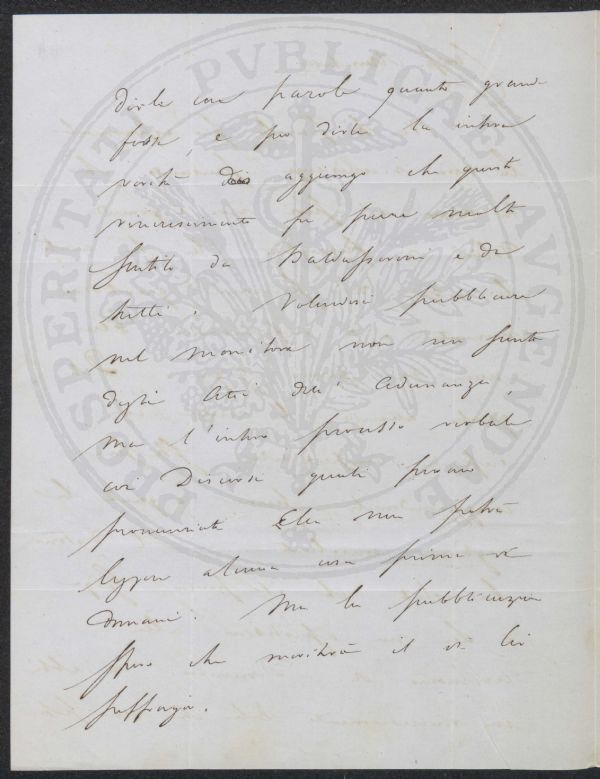 dirle con parole quanto grande
fosse, e per dirle la intera
verità aggiungo che questo
rincrescimento fu pure molto
sentito da Baldasseroni e da
tutti. Volendosi pubblicare
nel Monitore non un sunto
degli Atti dell' Adunanza,
ma l'intero processo verbale
coi Discorsi quali furono
pronunciati Ella non potrà
leggere alcuna cosa prima di
domani. Ma la pubblicazione
spero che meriterà il di Lei
suffragio.
PROSPERITATI PVBLICAE AVGENDAE